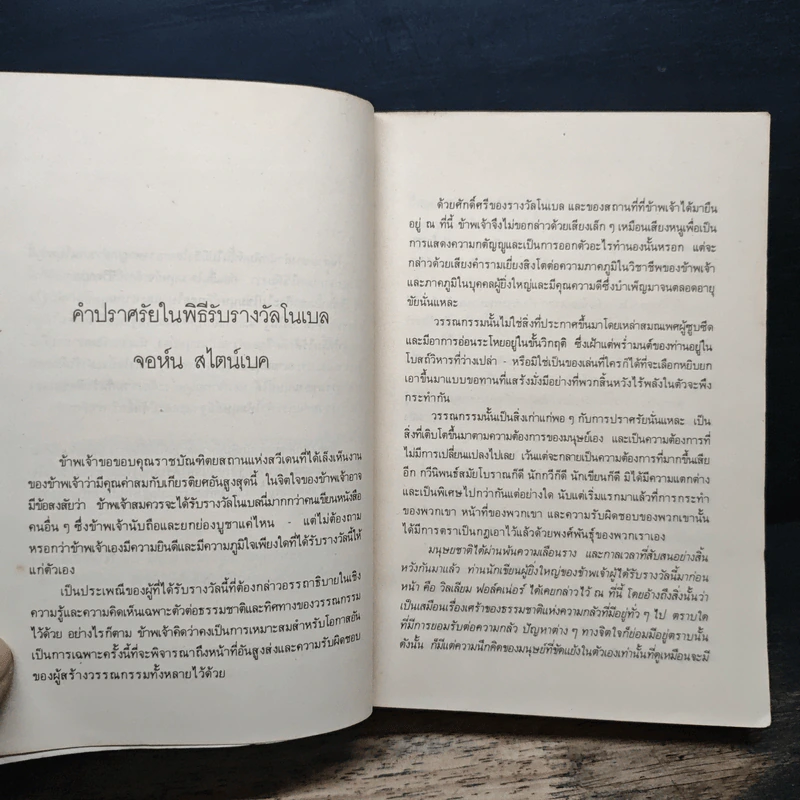 คำปราศรัยในพิธีรับรางวัลโนเบล
จอห์น สไตน์เบค
ข้าพเจ้าขอขอบคุณราชบัณฑิตยสถานแห่งสวีเดนที่ได้เล็งเห็นงาน
ของข้าพเจ้าว่ามีคุณค่าสมกับเกียรติยศอันสูงสุดนี้ ในจิตใจของข้าพเจ้าอาจ
มีข้อสงสัยว่า ข้าพเจ้าสมควรจะได้รับรางวัลโนเบลนี่มากกว่าคนเขียนหนังสือ
คนอื่น ๆ ซึ่งข้าพเจ้านับถือและยกย่องบูชาแค่ไหน - แต่ไม่ต้องถาม
หรอกว่าข้าพเจ้าเองมีความยินดีและมีความภูมิใจเพียงใดที่ได้รับรางวัลนี้ให้
แก่ตัวเอง
เป็นประเพณีของผู้ที่ได้รับรางวัลนี้ที่ต้องกล่าวอรรถาธิบายในเชิง
ความรู้และความคิดเห็นเฉพาะตัวต่อธรรมชาติและทิศทางของวรรณกรรม
ไว้ด้วย อย่างไรก็ตาม ข้าพเจ้าคิดว่าคงเป็นการเหมาะสมสำหรับโอกาสอัน
เป็นการเฉพาะครั้งนี้ที่จะพิจารณาถึงหน้าที่อันสูงส่งและความรับผิดชอบ
ของผู้สร้างวรรณกรรมทั้งหลายไว้ด้วย
ด้วยศักดิ์ศรีของรางวัลโนเบล และของสถานที่ที่ข้าพเจ้าได้มายืน
อยู่ ณ ที่นี้ ข้าพเจ้าจึงไม่ขอกล่าวด้วยเสียงเล็ก ๆ เหมือนเสียงหนูเพื่อเป็น
การแสดงความกตัญญูและเป็นการออกตัวอะไรทำนองนั้นหรอก แต่จะ
กล่าวด้วยเสียงคำรามเยี่ยงสิงโตต่อความภาคภูมิในวิชาชีพของข้าพเจ้า
และภาคภูมิในบุคคลผู้ยิ่งใหญ่และมีคุณความดีซึ่งบำเพ็ญมาจนตลอดอายุ
ขัยนั่นแหละ
วรรณกรรมนั้นไม่ใช่สิ่งที่ประกาศขึ้นมาโดยเหล่าสมณเพศผู้ซูบซีด
และมีอาการอ่อนระโหยอยู่ในขั้นวิกฤติ ซึ่งเฝ้าแต่พร่ำมนต์ของท่านอยู่ใน
โบสถ์วิหารที่ว่างเปล่า - หรือมิใช่เป็นของเล่นที่ใครก็ได้ที่จะเลือกหยิบยก
เอาขึ้นมาแบบขอทานที่แสร้งมั่งมีอย่างที่พวกสิ้นหวังไร้พลังในตัวจะพึง
กระทำกัน
วรรณกรรมนั้นเป็นสิ่งเก่าแก่พอ ๆ กับการปราศรัยนั่นแหละ เป็น
สิ่งที่เติบโตขึ้นมาตามความต้องการของมนุษย์เอง และเป็นความต้องการที่
ไม่มีการเปลี่ยนแปลงไปเลย เว้นแต่จะกลายเป็นความต้องการที่มากขึ้นเสีย
อีก กวีนิพนธ์สมัยโบราณก็ดี นักกวีก็ดี นักเขียนก็ดี มิได้มีความแตกต่าง
และเป็นพิเศษไปกว่ากันแต่อย่างใด นับแต่เริ่มแรกมาแล้วที่การกระทำ
ของพวกเขา หน้าที่ของพวกเขา และความรับผิดชอบของพวกเขานั้น
ได้มีการตราเป็นกฎเอาไว้แล้วด้วยพงศ์พันธุ์ของพวกเราเอง
มนุษยชาติได้ผ่านพ้นความเลือนราง และกาลเวลาที่สับสนอย่างสิ้น
หวังกันมาแล้ว ท่านนักเขียนผู้ยิ่งใหญ่ของข้าพเจ้าผู้ได้รับรางวัลนี้มาก่อน
หน้า คือ วิลเลียม ฟอล์คเนอร์ ได้เคยกล่าวไว้ ณ ที่นี้ โดยอ้างถึงสิ่งนั้นว่า
เป็นเสมือนเรื่องเศร้าของธรรมชาติแห่งความกลัวที่มีอยู่ทั่ว ๆ ไป ตราบใด
ที่มีการยอมรับต่อความกลัว ปัญหาต่าง ๆ ทางจิตใจก็ย่อมมีอยู่ตราบนั้น
ดังนั้น ก็มีแต่ความนึกคิดของมนุษย์ที่ขัดแย้งในตัวเองเท่านั้นที่ดูเหมือนจะมี